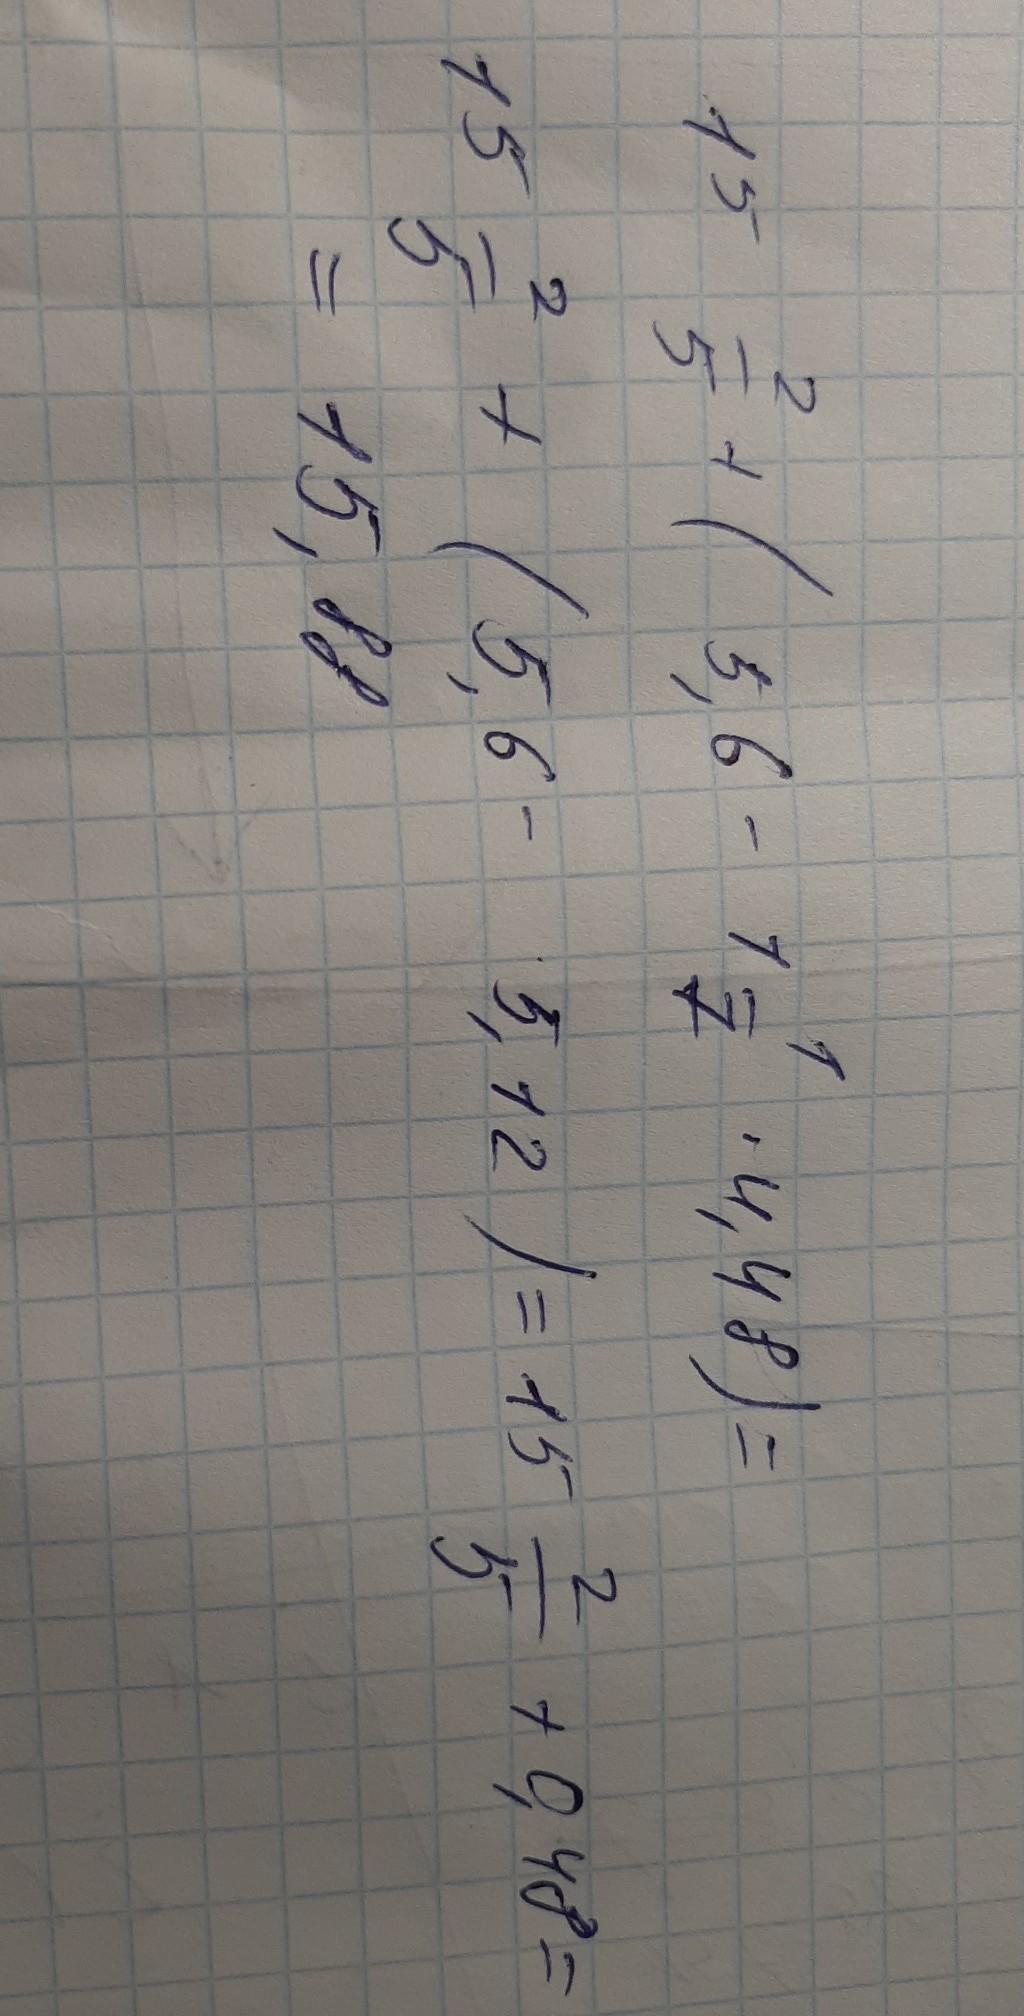 15 2/5 + (5,6 - 1 1/7 · 4,48) =
15 2/5 + (5,6 - 5,12) = 15 2/5 + 0,48 =
= 15,88